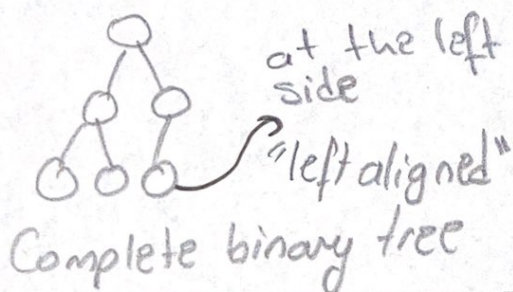 at the left
side
"left aligned"
Complete binary tree